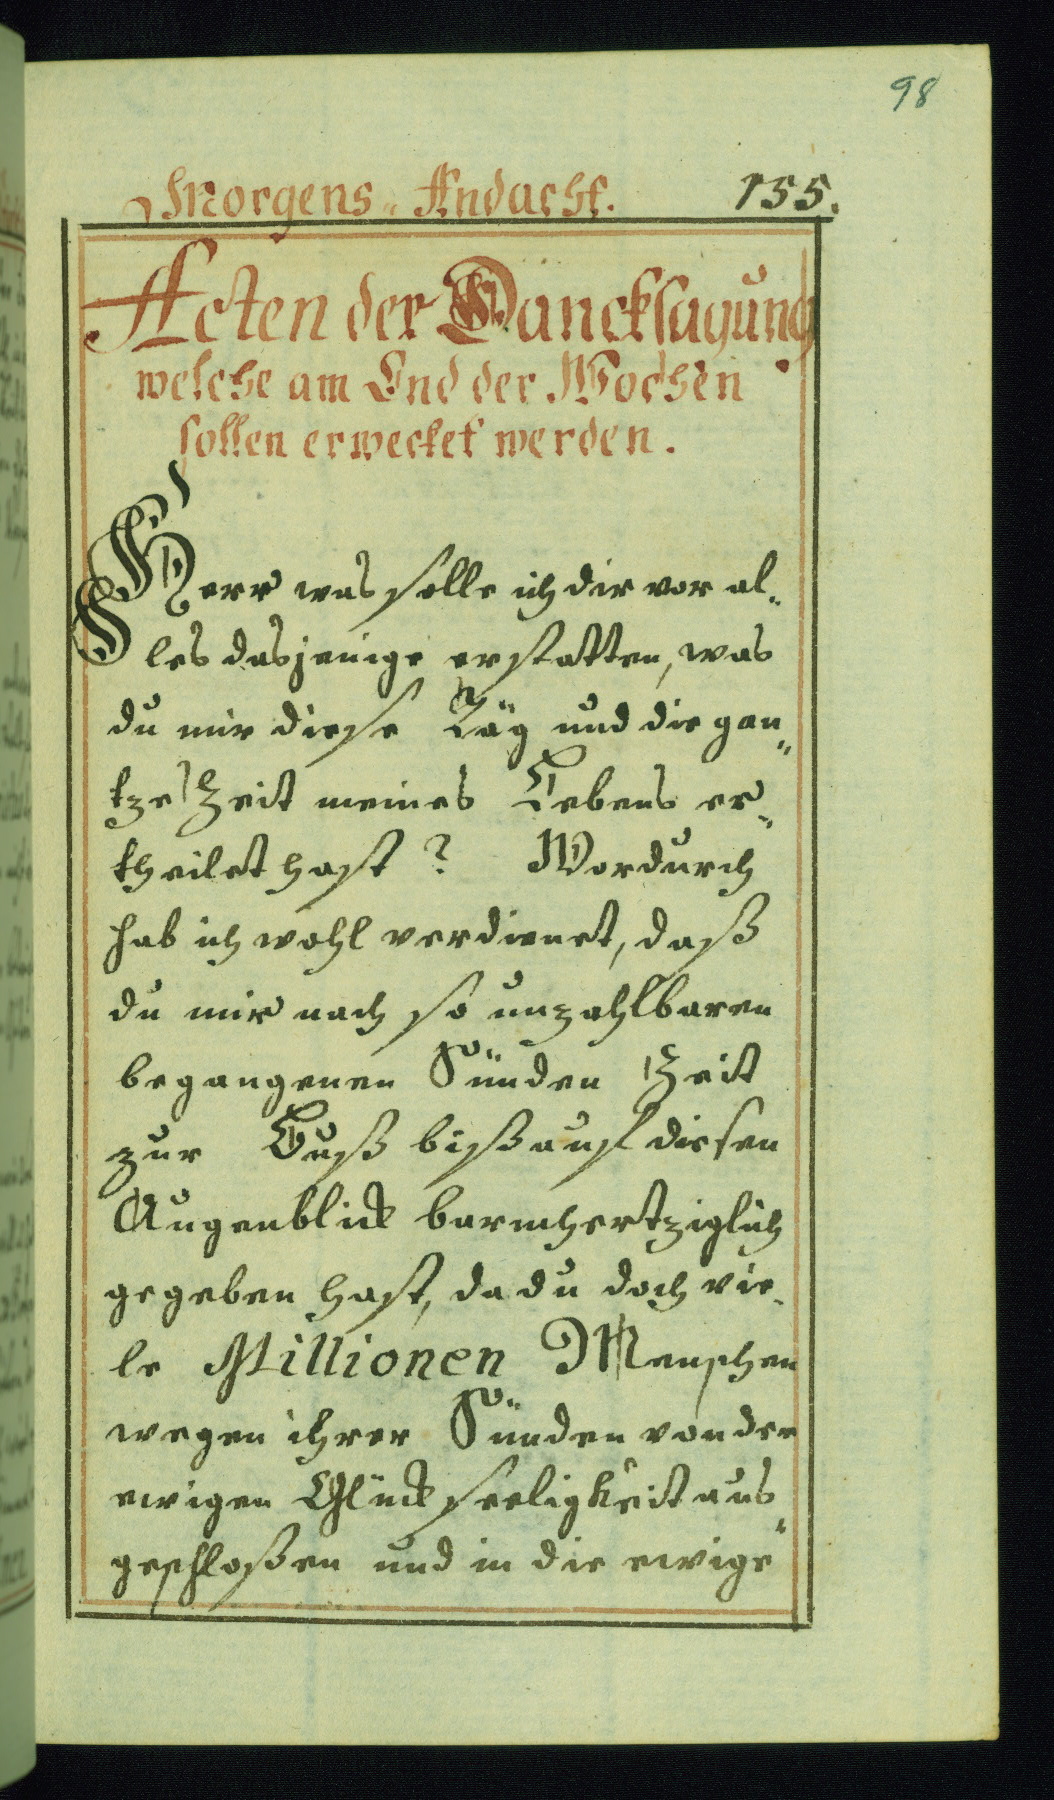 98
Morgens„ Andacht. 155.
Acten der Dancksagung
welche am End der Wochen
sollen erwecket werden.
Herr was solle ich dir vor al„
les dasjenige erstatten, was
du mir diese Täg und die gan„
tze Zeit meines Lebens er„
theilet hast? Wordurch
hab ich wohl verdienet, daß
du mir nach so unzahlbaren
begangenen Sünden Zeit
zur Buß biß auf diesen
Augenblick barmhertziglich
gegeben hast, da du doch vie„
le Millionen Menschen
wegen ihrer Sünden von der
ewigen Glückseeligkeit aus„
geschloßen und in die ewige